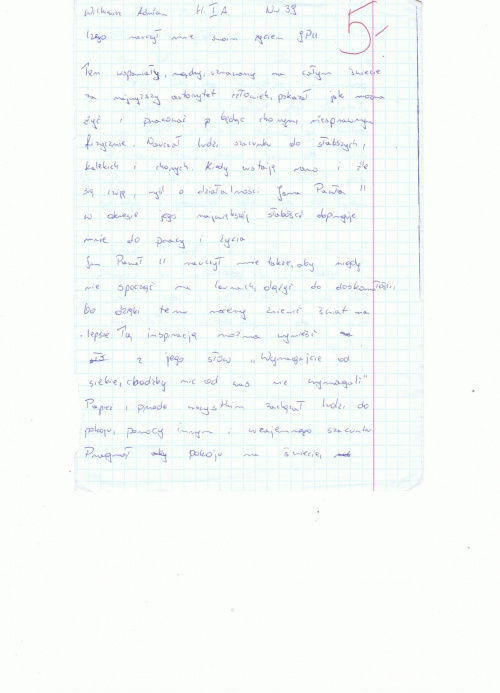 Adrian kl. I A Nr 39
5-
Czego nauczył mnie swoim życiem JPII
Ten wspaniały, mądry, uznawany na całym świecie
za najwyższy autorytet człowiek, pokazał jak można
żyć i pracować będąc chorym, niesprawnym
fizycznie. Nauczał ludzi szacunku do słabszych,
kalekich i chorych. Kiedy wstaję rano i źle
się czuję, myśl o działalności Jana Pawła II
w okresie jego największej słabości dopinguje
mnie do pracy i życia
Jan Paweł II nauczył mnie także, aby nigdy
nie spocząć na laurach, dążyć do doskonałości,
bo dzięki temu możemy zmienić świat na
lepsze Tą inspirację można wynieść
z jego słów „Wymagajcie od
siebie, choćby nic od was nie wymagali"
Papież, przede wszystkim zachęcał ludzi do
pokoju, pomocy innym i wzajemnego szacunku
Pragnął aby pokoju na świecie,